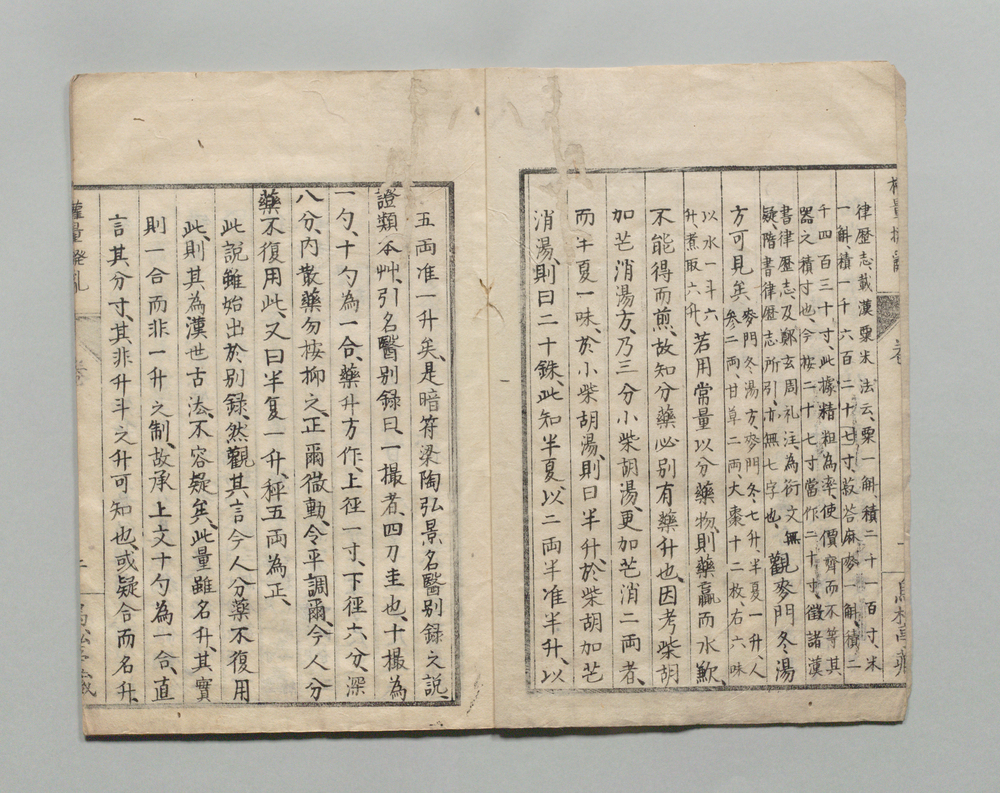 律歷志載漢粟米法云、粟一斛、積二千一百寸、米
一斛、積一千六百二十七寸、菽荅麻麥一斛、積二
千四百三十寸、此據精粗為率、使價齊而不等其
器之積寸也、今按二十七寸當作二十寸、徵諸漢
書律歷志及鄭玄周礼注為衍文無
疑、隋書律歷志所引、亦無七字也、觀麥門冬湯
方可見矣、麥門冬湯方、麥門冬七升、半夏一升、人
參二両、甘草二両大棗十二枚、右六味
以水一斗六
升煮取六升、若用常量以分藥物、則藥贏而水歉、
不能得而煎、故知分藥必別有藥升也、因考柴胡
加芒消湯方、乃三分小柴胡湯、更加芒消二両者、
而半夏一味、於小柴胡湯、則曰半升、於柴胡加芒
消湯、則曰二十銖、此知半夏以二両半准半升、以
五両准一升矣、是暗符梁陶弘景名醫別録之説、
證類本艸、引名醫別録曰、一撮者、四刀圭也、十撮為
一勺、十勺為一合、藥升方作、上徑一寸、下徑六分、深
八分、内散藥勿按抑之、正爾微動、令平調爾、今人分
藥不復用此、又曰半复一升、秤五両為正、
此説雖始出於別録、然觀其言今人分藥不復用
此、則其為漢世古法、不容疑矣、此量雖名升、其實
則一合而非一升之制、故承上文十勺為一合、直
言其分寸、其非升斗之升可知也、或疑合而名升、